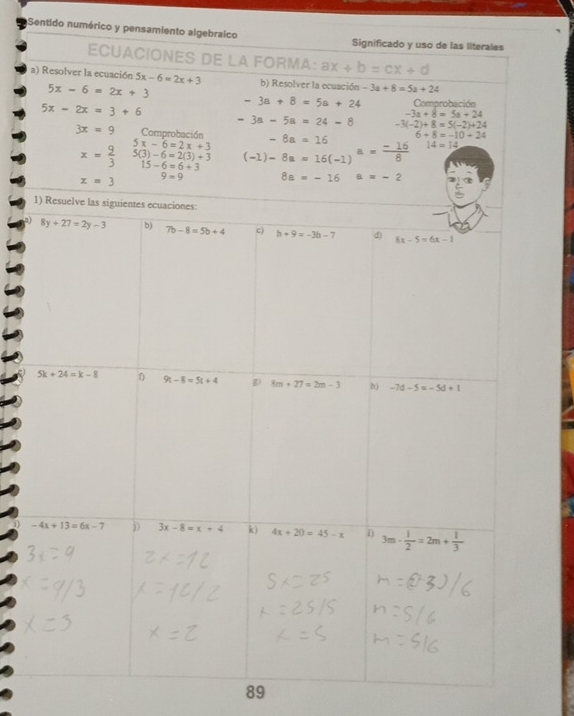 Sentido numérico y pensamiento algebraico
Significado y uso de las literales
ECUACIONES DE LA FORMA: ax + b = cx + d
a) Resolver la ecuación 5x – 6 = 2x + 3
5x - 6 = 2x + 3
5x - 2x = 3 + 6
3x = 9
x = 9/3
x = 3
Comprobación
5x - 6 = 2x + 3
5(3) - 6 = 2(3) + 3
15 - 6 = 6 + 3
9 = 9
b) Resolver la ecuación – 3a + 8 = 5a + 24
- 3a + 8 = 5a + 24
- 3a - 5a = 24 - 8
- 8a = 16
(-1) - 8a = 16(-1)
8a = - 16
a = -16/8
a = - 2
Comprobación
-3a + 8 = 5a + 24
-3(-2)+ 8 = 5(-2)+24
6 + 8 = -10 + 24
14 = 14
1) Resuelve las siguientes ecuaciones:
a) 8y + 27 = 2y – 3
b) 7b – 8 = 5b + 4
c) h + 9 = –3h – 7
d) 8x – 5 = 6x – 1
5k + 24 = k – 8
f) 9t – 8 = 5t + 4
g) 8m + 27 = 2m – 3
h) –7d – 5 = – 5d + 1
i) – 4x + 13 = 6x – 7
j) 3x – 8 = x + 4
k) 4x + 20 = 45 – x
l) 3m - 1/2 = 2m + 1/3
3x = 9
x = 9/3
x = 3
2x = 12
x = 12/2
x = 2
5x = 25
x = 25/5
x = 5
n = 5/6
m = 5/6
89